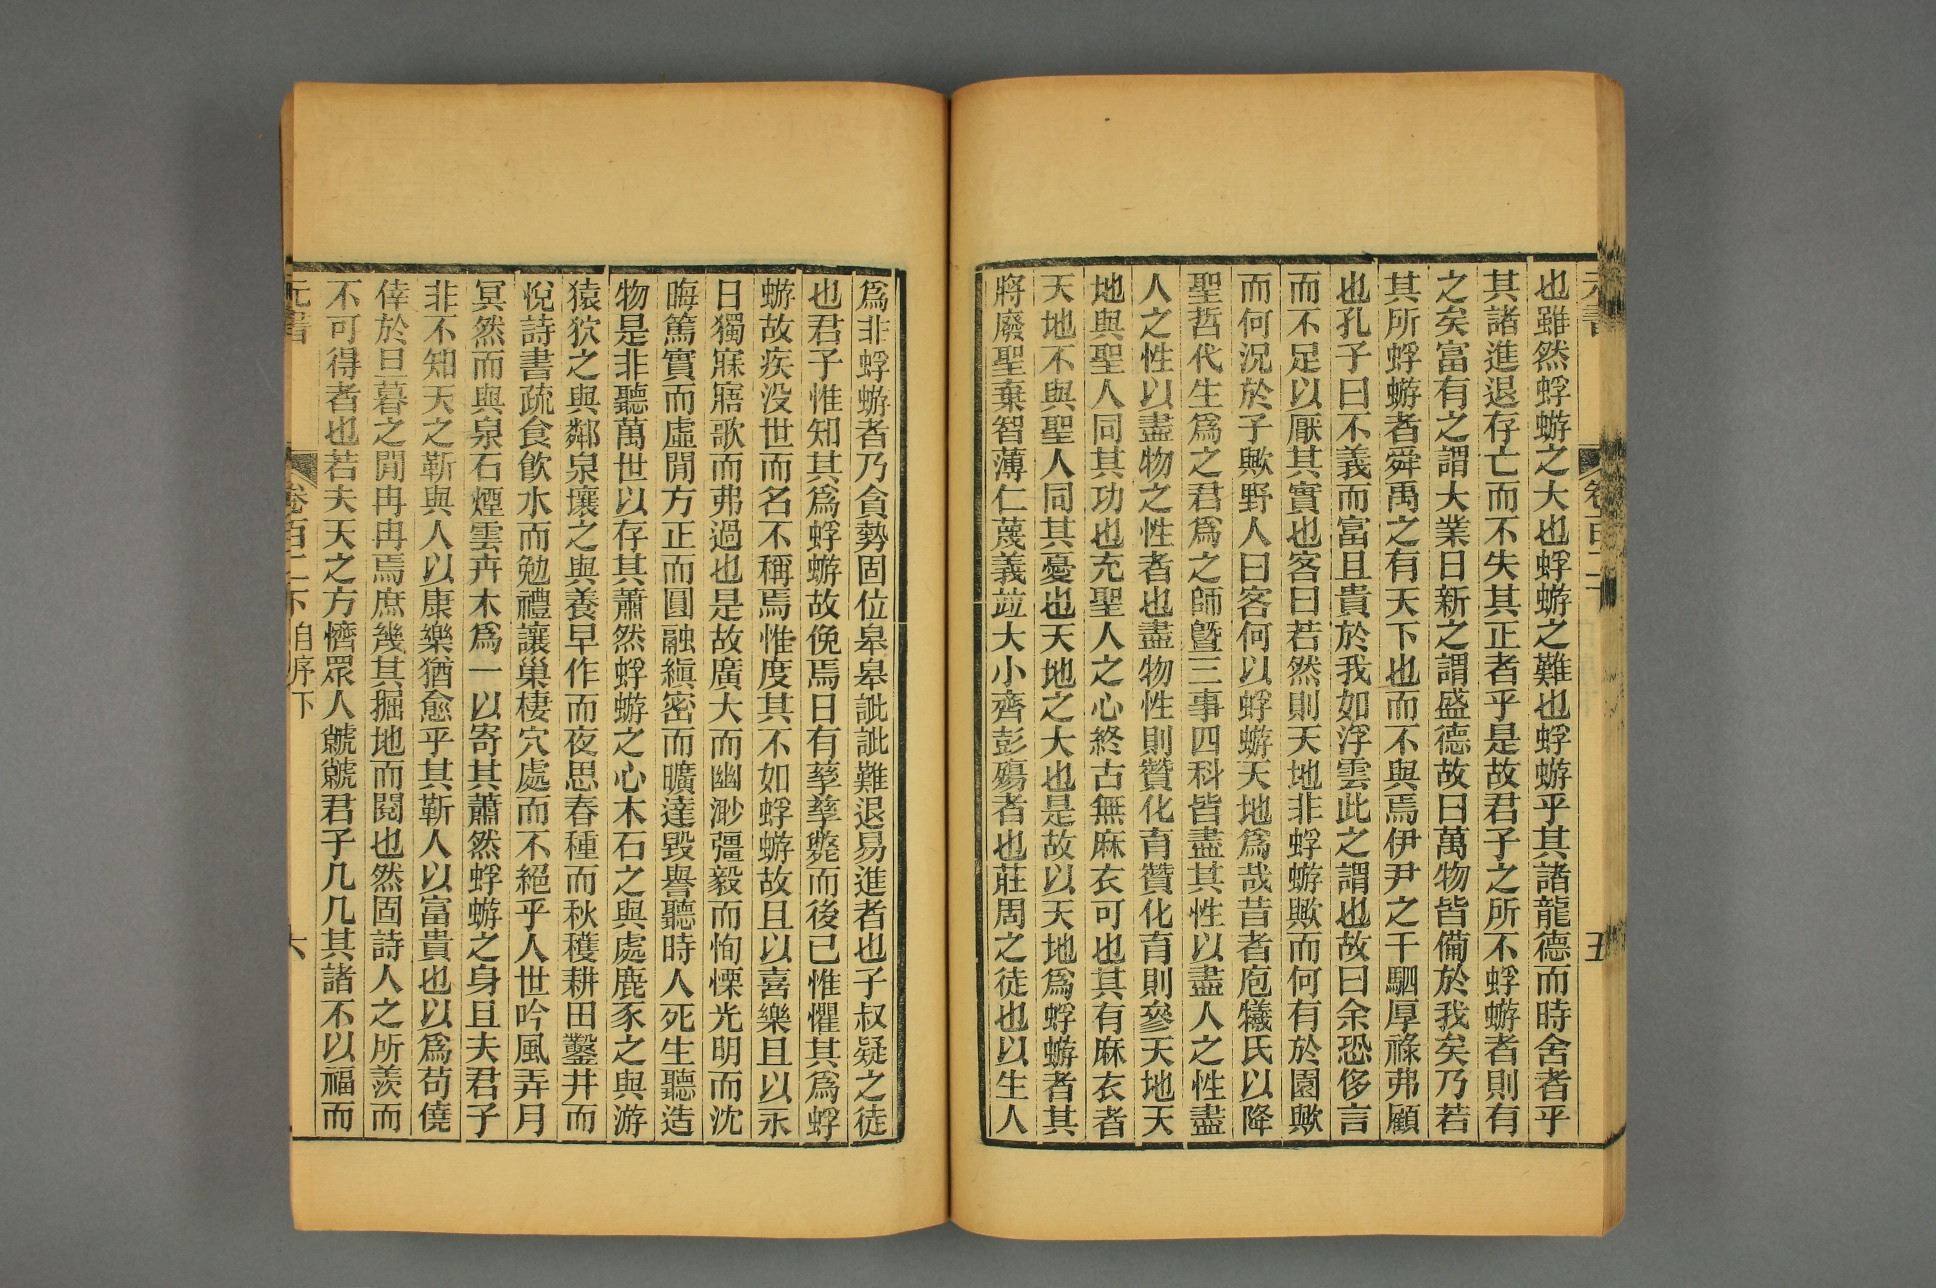 元書
卷百二下
五
也雖然蜉蝣之大也蜉蝣之難也蜉蝣乎其諸龍德而時舍者乎
其諸進退存亡而不失其正者乎是故君子之所不蜉蝣者則有
之矣富有之謂大業日新之謂盛德故曰萬物皆備於我矣乃若
其所蜉蝣者舜禹之有天下也而不與焉伊尹之千駟厚祿弗顧
也孔子曰不義而富且貴於我如浮雲此之謂也故曰余恐侈言
而不足以厭其實也客曰若然則天地非蜉蝣歟而何有於園歟
而何況於子歟野人曰客何以蜉蝣天地爲哉昔者庖犧氏以降
聖哲代生爲之君爲之師曁三事四科皆盡其性以盡人之性盡
人之性以盡物之性者也盡物性則贊化育贊化育則參天地天
地與聖人同其功也充聖人之心終古無麻衣可也其有麻衣者
天地不與聖人同其憂也天地之大也是故以天地爲蜉蝣者其
將廢聖棄智薄仁蔑義竝大小齊彭殤者也莊周之徒也以生人
爲非蜉蝣者乃貪勢固位皋皋訿訿難退易進者也子叔疑之徒
也君子惟知其爲蜉蝣故俛焉日有孳孳斃而後已惟懼其爲蜉
蝣故疾没世而名不稱焉惟度其不如蜉蝣故且以喜樂且以永
日獨寐寤歌而弗過也是故廣大而幽渺彊毅而恂慄光明而沈
晦篤實而虛閒方正而圓融縝密而曠達毀譽聽時人死生聽造
物是非聽萬世以存其蕭然蜉蝣之心木石之與處鹿豕之與游
猿狖之與鄰泉壤之與養早作而夜思春種而秋穫耕田鑿井而
悅詩書疏食飮水而勉禮讓巢棲穴處而不絕乎人世吟風弄月
冥然而與泉石煙雲卉木爲一以寄其蕭然蜉蝣之身且夫君子
非不知天之靳與人以康樂猶愈乎其靳人以富貴也以爲苟僥
倖於旦暮之閒冉冉焉庶幾其掘地而閱也然固詩人之所羨而
不可得者也若夫天之方懠眾人虩虩君子几几其諸不以福而
元書
卷百二下
自序下
六